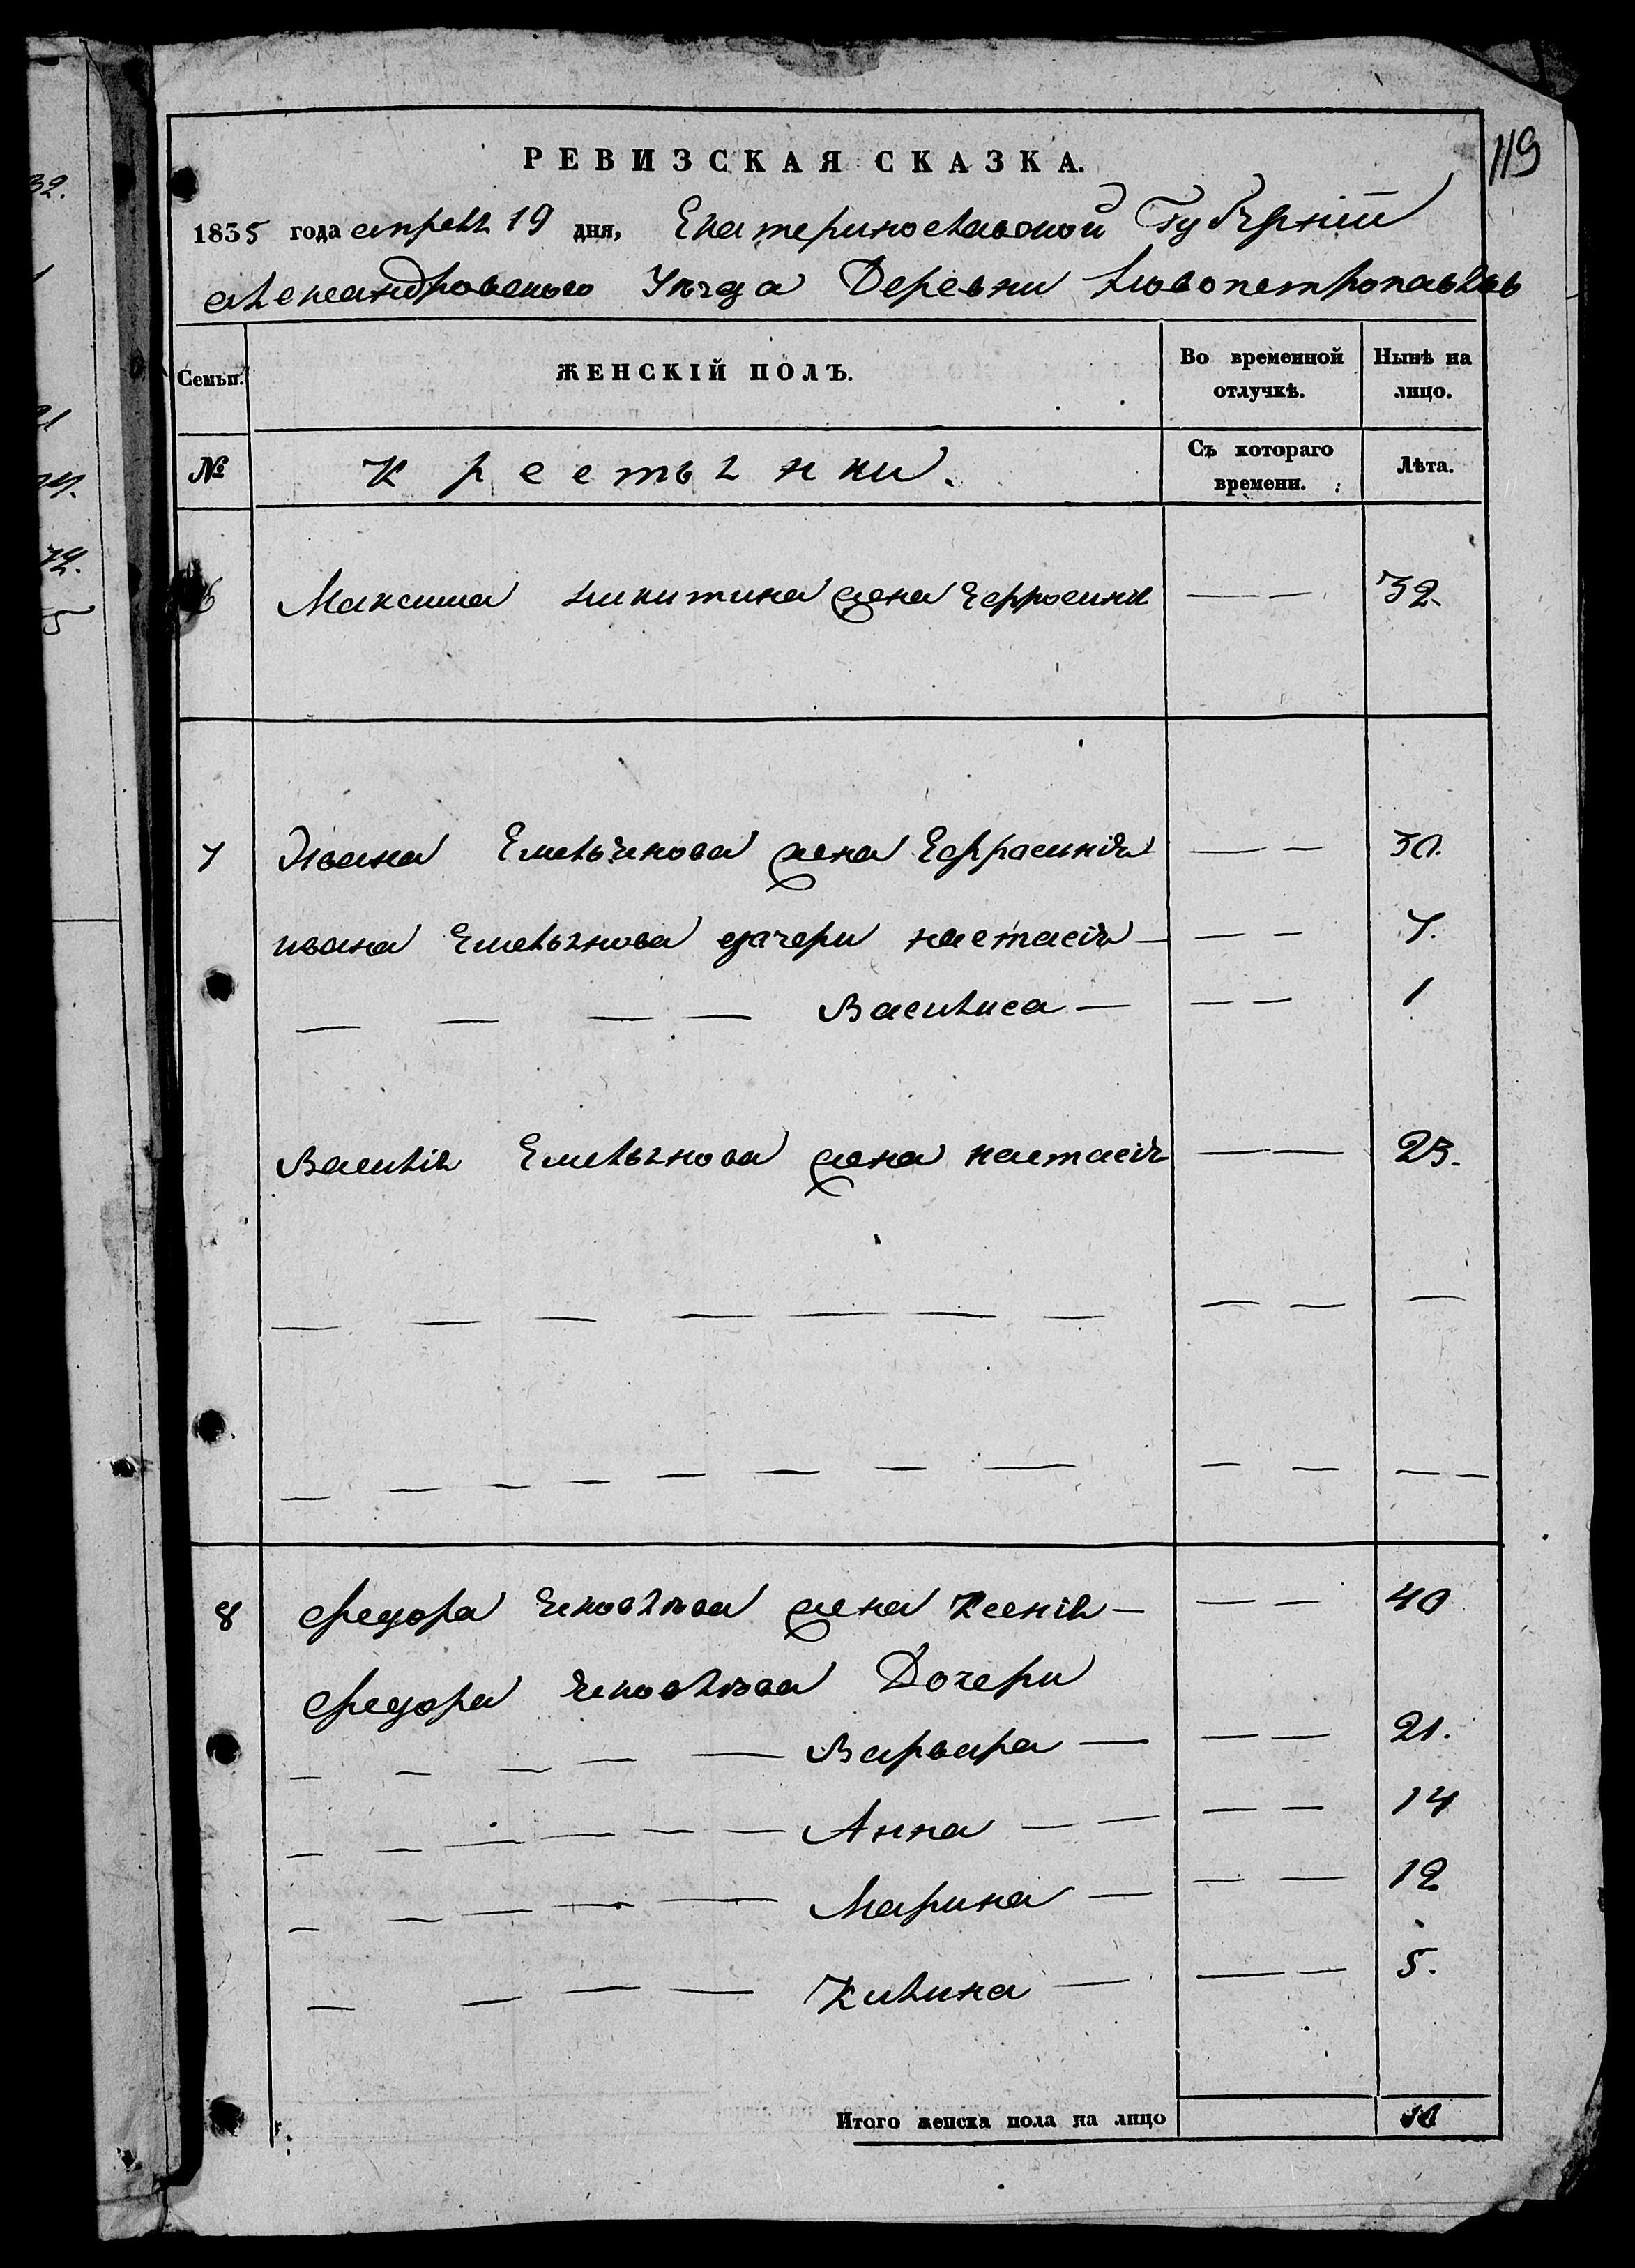 32.
21
119
РЕВИЗСКАЯ СКАЗКА.
1835 года апреля 19 дня, Екатеринославской Губерніи
Александровского Уезда Деревни Новопетропавловк
Семьи.
ЖЕНСКІЙ ПОЛЪ.
Во временной отлучкѣ.
Ныне на лицо.
№
Крестьянки.
Съ котораго времени.
Лѣта.
6 Максима Никитина жена Ефросиня — — 32.
7 Ивана Емельянова жена Ефросинія — — 30.
ивана Емельянова дочери настасія — — — 7.
— — — — Василиса — — — 1
Василія Емельянова жена настасія — — 23.
— — — — — — — — — —
— — — — — — — — — — — —
8 Федора Яковлева жена Ксенія — — — 40
Федора Яковлева Дочери
— — — — — Варвара — — — 21.
— — — — — — Анна — — — — 14
— — — — — Марина — — — 12
— — — — Килина — — — 5.
Итого женска пола на лицо 10